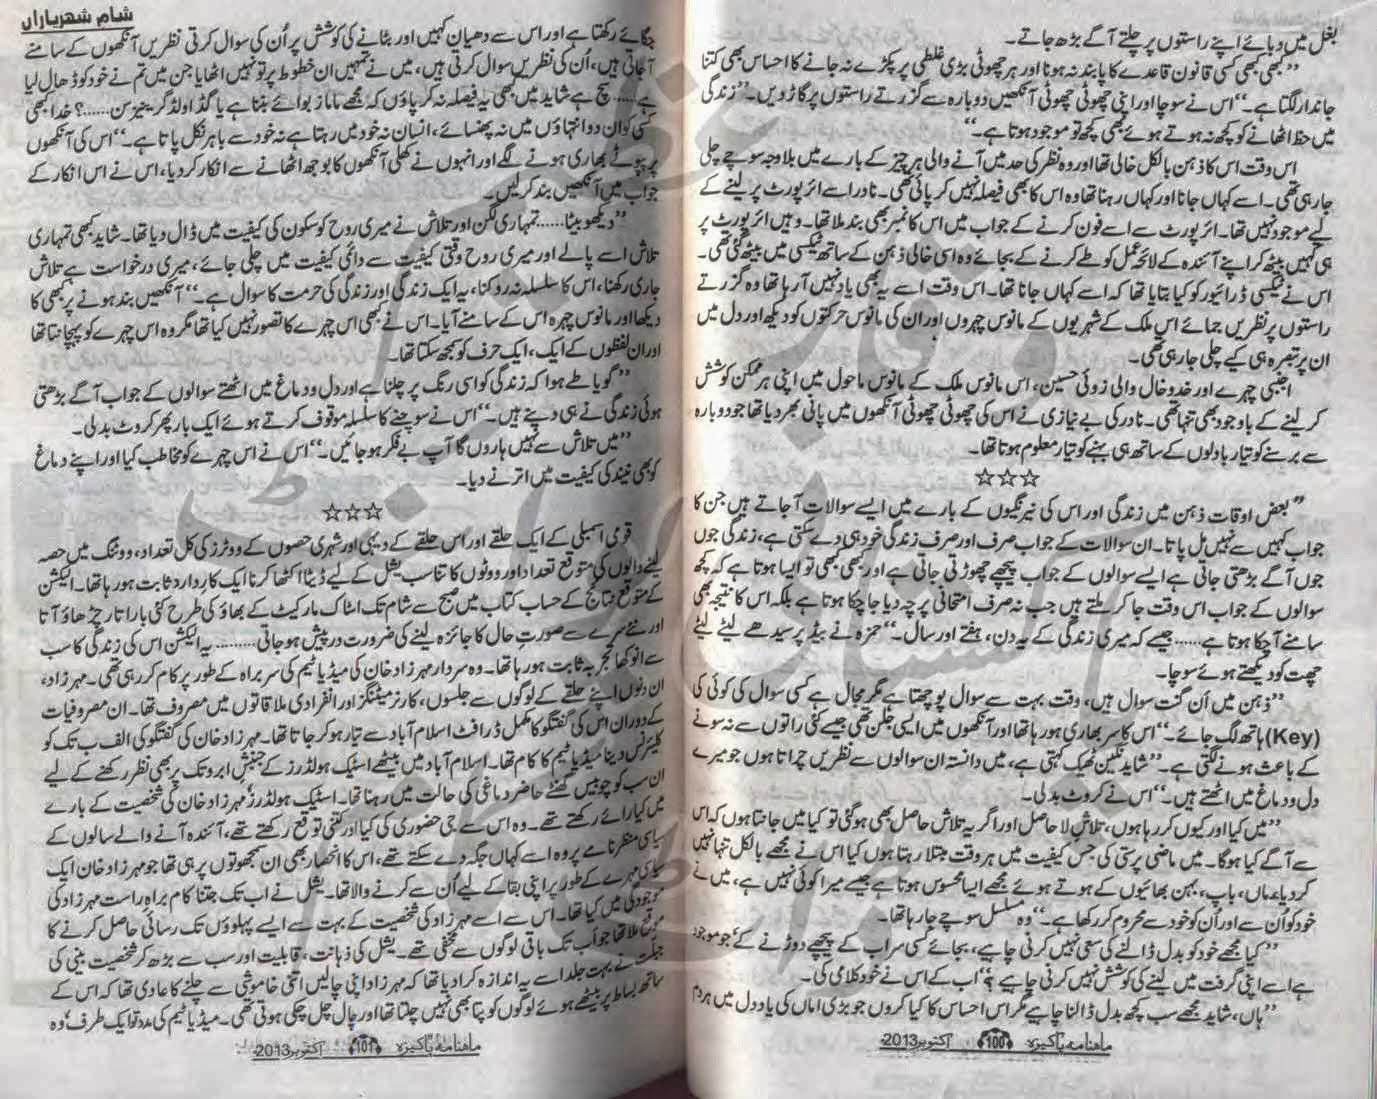 بغل میں دبائے اپنے راستوں پر چلتے آگے بڑھ جاتے۔
”کبھی کبھی کسی قانون قاعدے کا پابند نہ ہونا اور ہر چھوٹی بڑی غلطی پر پکڑے نہ جانے کا احساس بھی کتنا
جاندار لگتا ہے۔“ اس نے سوچا اور اپنی چھوٹی چھوٹی آنکھیں دوبارہ سے گزرتے راستوں پر گاڑ دیں۔ ”زندگی
میں حظ اٹھانے کو کچھ نہ ہوتے ہوئے بھی کچھ تو موجود ہوتا ہے۔“
اس وقت اس کا ذہن بالکل خالی تھا اور وہ نظر کی حد میں آنے والی ہر چیز کے بارے میں بلاوجہ سوچے چلی
جا رہی تھی۔ اسے کہاں جانا اور کہاں رہنا تھا وہ اس کا بھی فیصلہ نہیں کر پائی تھی۔ نادر اسے ائر پورٹ پر لینے کے
لیے موجود نہیں تھا۔ ائر پورٹ سے اسے فون کرنے کے جواب میں اس کا نمبر بھی بند ملا تھا۔ وہیں ائر پورٹ پر
ہی کہیں بیٹھ کر اپنے آئندہ کے لائحہ عمل کو طے کرنے کے بجائے وہ اسی خالی ذہن کے ساتھ ٹیکسی میں بیٹھ گئی تھی۔
اس نے ٹیکسی ڈرائیور کو کیا بتایا تھا کہ اسے کہاں جانا تھا۔ اس وقت اسے یہ بھی یاد نہیں آ رہا تھا وہ گزرتے
راستوں پر نظریں جمائے اس ملک کے شہریوں کے مانوس چہروں اور ان کی مانوس حرکتوں کو دیکھ اور دل میں
ان پر تبصرہ ہی کیے چلی جا رہی تھی۔
اجنبی چہرے اور خدوخال والی زوئی حسین، اس مانوس ملک کے مانوس ماحول میں اپنی ہر ممکن کوشش
کر لینے کے باوجود بھی تنہا تھی۔ نادر کی بے نیازی نے اس کی چھوٹی چھوٹی آنکھوں میں پانی بھر دیا تھا جو دوبارہ
سے برسنے کو تیار بادلوں کے ساتھ ہی بہنے کو تیار معلوم ہوتا تھا۔
☆☆☆
”بعض اوقات ذہن میں زندگی اور اس کی نیرنگیوں کے بارے میں ایسے سوالات آ جاتے ہیں جن کا
جواب کہیں سے نہیں مل پاتا۔ ان سوالات کے جواب صرف اور صرف زندگی خود ہی دے سکتی ہے، زندگی جوں
جوں آگے بڑھتی جاتی ہے ایسے سوالوں کے جواب پیچھے چھوڑتی جاتی ہے اور کبھی کبھی تو ایسا ہوتا ہے کہ کچھ
سوالوں کے جواب اس وقت جا کر ملتے ہیں جب نہ صرف امتحانی پرچہ دیا جا چکا ہوتا ہے بلکہ اس کا نتیجہ بھی
سامنے آ چکا ہوتا ہے...... جیسے کہ میری زندگی کے یہ دن، ہفتے اور سال۔“ حمزہ نے بیڈ پر سیدھے لیٹے لیٹے
چھت کو دیکھتے ہوئے سوچا۔
”ذہن میں ان گنت سوال ہیں، وقت بہت سے سوال پوچھتا ہے مگر مجال ہے کسی سوال کی کوئی کی
(Key) ہاتھ لگ جائے۔“ اس کا سر بھاری ہو رہا تھا اور آنکھوں میں ایسی جلن تھی جیسے کئی راتوں سے نہ سونے
کے باعث ہونے لگتی ہے۔ ”شاید نگین ٹھیک کہتی ہے، میں دانستہ ان سوالوں سے نظریں چراتا ہوں جو میرے
دل و دماغ میں اٹھتے ہیں۔“ اس نے کروٹ بدلی۔
”میں کیا اور کیوں کر رہا ہوں، تلاش لا حاصل اور اگر یہ تلاش حاصل بھی ہو گئی تو کیا میں جانتا ہوں کہ اس
سے آگے کیا ہوگا۔ میں ماضی پرستی کی جس کیفیت میں ہر وقت مبتلا رہتا ہوں کیا اس نے مجھے بالکل تنہا نہیں
کر دیا، ماں، باپ، بہن بھائیوں کے ہوتے ہوئے مجھے ایسا محسوس ہوتا ہے جیسے میرا کوئی نہیں ہے، میں نے
خود کو ان سے اور ان کو خود سے محروم کر رکھا ہے۔“ وہ مسلسل سوچے جا رہا تھا۔
”کیا مجھے خود کو بدل ڈالنے کی سعی نہیں کرنی چاہیے، بجائے کسی سراب کے پیچھے دوڑنے کے جو موجود
ہے اسے اپنی گرفت میں لینے کی کوشش نہیں کرنی چاہیے؟“ اب کے اس نے خود کلامی کی۔
”ہاں، شاید مجھے سب کچھ بدل ڈالنا چاہیے مگر اس احساس کا کیا کروں جو بڑی اماں کی یاد دل میں ہر دم
ماہنامہ پاکیزہ 100 اکتوبر 2013ء
شام شہر یاراں
جگائے رکھتا ہے اور اس سے دھیان کہیں اور ہٹانے کی کوشش پر ان کی سوال کرتی نظریں آنکھوں کے سامنے
آ جاتی ہیں، ان کی نظریں سوال کرتی ہیں، میں نے تمہیں ان خطوط پر تو نہیں اٹھایا جن میں تم نے خود کو ڈھال لیا
ہے...... سچ ہے شاید میں بھی یہ فیصلہ نہ کر پاؤں کہ مجھے ماماز بوائے بننا ہے یا گڈ اولڈ گرینیز سن......؟ خدا بھی
کسی کو ان دو انتہاؤں میں نہ پھنسائے، انسان نہ خود میں رہتا ہے نہ خود سے باہر نکل پاتا ہے۔“ اس کی آنکھوں
پر پپوٹے بھاری ہونے لگے اور انہوں نے کھلی آنکھوں کا بوجھ اٹھانے سے انکار کر دیا، اس نے اس انکار کے
جواب میں آنکھیں بند کر لیں۔
”دیکھو بیٹا...... تمہاری لگن اور تلاش نے میری روح کو سکون کی کیفیت میں ڈال دیا تھا۔ شاید کبھی تمہاری
تلاش اسے پا لے اور میری روح وقتی کیفیت سے دائمی کیفیت میں چلی جائے، میری درخواست ہے تلاش
جاری رکھنا، اس کا سلسلہ نہ روکنا، یہ ایک زندگی اور زندگی کی حرمت کا سوال ہے۔“ آنکھیں بند ہونے پر کبھی کا
دیکھا اور مانوس چہرہ اس کے سامنے آیا۔ اس نے کبھی اس چہرے کا تصور نہیں کیا تھا مگر وہ اس چہرے کو پہچانتا تھا
اور ان لفظوں کے ایک، ایک حرف کو سمجھ سکتا تھا۔
”گویا طے ہوا کہ زندگی کو اسی رنگ پر چلنا ہے اور دل و دماغ میں اٹھتے سوالوں کے جواب آگے بڑھتی
ہوئی زندگی نے ہی دینے ہیں۔“ اس نے سوچنے کا سلسلہ موقوف کرتے ہوئے ایک بار پھر کروٹ بدلی۔
”میں تلاش سے نہیں ہاروں گا آپ بے فکر ہو جائیں۔“ اس نے اس چہرے کو مخاطب کیا اور اپنے دماغ
کو بھی نیند کی کیفیت میں اترنے دیا۔
☆☆☆
قومی اسمبلی کے ایک حلقے اور اس حلقے کے دیہی اور شہری حصوں کے ووٹرز کی کل تعداد، ووٹنگ میں حصہ
لینے والوں کی متوقع تعداد اور ووٹوں کا تناسب یشل کے لیے ڈیٹا اکٹھا کرنا ایک کارِ دارد ثابت ہو رہا تھا۔ الیکشن
کے متوقع نتائج کے حساب کتاب میں صبح سے شام تک اسٹاک مارکیٹ کے بھاؤ کی طرح کئی بار اتار چڑھاؤ آتا
اور نئے سرے سے صورتِ حال کا جائزہ لینے کی ضرورت درپیش ہو جاتی......... یہ الیکشن اس کی زندگی کا سب
سے انوکھا تجربہ ثابت ہو رہا تھا۔ وہ سردار مہرزاد خان کی میڈیا ٹیم کی سربراہ کے طور پر کام کر رہی تھی۔ مہرزاد،
ان دنوں اپنے حلقے کے لوگوں سے جلسوں، کارنر میٹنگز اور انفرادی ملاقاتوں میں مصروف تھا۔ ان مصروفیات
کے دوران اس کی گفتگو کا مکمل ڈرافٹ اسلام آباد سے تیار ہو کر جاتا تھا۔ مہرزاد خان کی گفتگو کی الف ب تک کو
کلیئرنس دینا میڈیا ٹیم کا کام تھا۔ اسلام آباد میں بیٹھے اسٹیک ہولڈرز کے جنبشِ ابرو تک پر بھی نظر رکھنے کے لیے
ان سب کو چوبیس گھنٹے حاضر دماغی کی حالت میں رہنا تھا۔ اسٹیک ہولڈرز، مہرزاد خان کی شخصیت کے بارے
میں کیا رائے رکھتے تھے۔ وہ اس سے جی حضوری کی کیا اور کتنی توقع رکھتے تھے، آئندہ آنے والے سالوں کے
سیاسی منظرنامے پر وہ اسے کہاں جگہ دے سکتے تھے، اس کا انحصار بھی ان سمجھوتوں پر ہی تھا جو مہرزاد خان ایک
سیاسی مہرے کے طور پر اپنی بقا کے لیے ان سے کرنے والا تھا۔ یشل نے اب تک جتنا کام براہِ راست مہرزاد کی
موجودگی میں کیا تھا۔ اس سے اسے مہرزاد کی شخصیت کے بہت سے ایسے پہلوؤں تک رسائی حاصل کرنے کا
موقع ملا تھا جو اب تک باقی لوگوں سے مخفی تھے۔ یشل کی ذہانت، قابلیت اور سب سے بڑھ کر شخصیت بینی کی
جبلت نے بہت جلد اسے یہ اندازہ کرا دیا تھا کہ مہرزاد اپنی چالیں اتنی خاموشی سے چلنے کا عادی تھا کہ اس کے
ساتھ بساط پر بیٹھے ہوئے لوگوں کو پتا بھی نہیں چلتا تھا اور چال چل چکی ہوتی تھی۔ میڈیا ٹیم کی مدد تو ایک طرف وہ
ماہنامہ پاکیزہ 101 اکتوبر 2013ء